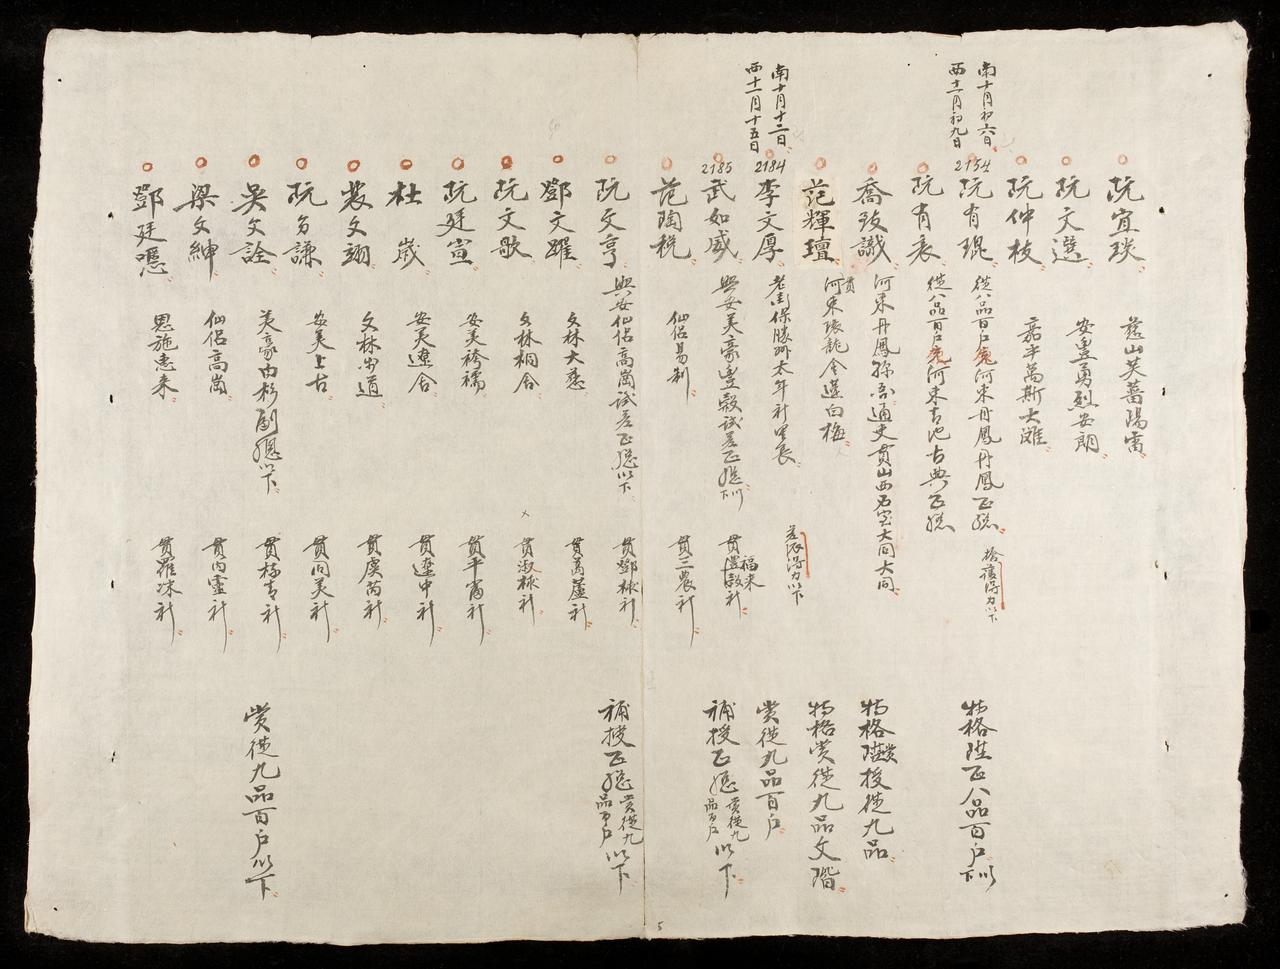 阮宜琰
慈山芙蕾陽雷
阮文選
安豊勇烈安朗
阮仲枝
嘉平萬斯大灘
南十月初六日
西十一月初九日
2154
阮有琨
從八品百戶充河東丹鳳丹鳳正總
得力以下
特格陞正八品百戶以下
阮有衣
從八品百戶充河東青池古典正總
喬致識
河東丹鳳孫吾通吏貫山西石室大同大同
特格陞授從九品
范輝壇
貫
河東彰龍金蓮白梅
特格賞從九品文階
南十月十二日
西十一月十五日
2184
李文厚
老街保勝州太年社里長
差派得力以下
賞從九品百戶
2185
武如威
興安美豪豊穀試差正總下
貫豊穀社
福來
補授正總賞從九品百戶以下
范陶稅
仙侶易制
貫三農社
阮文亨
興安仙侶高崗試差正總以下
貫鄧林社
補授正總賞從九品百戶以下
鄧文躍
文林大慈
貫萬蘆社
阮文歌
文林桐舍
貫淑林社
阮廷宣
安美袴襦
貫平富社
杜歲
安美遼舍
貫遼中社
裴文翊
文林弗道
貫虞芮社
阮芳謙
安美上古
貫同美社
吳文詮
美豪由杉副總以下
貫桂青社
賞從九品百戶以下
梁文紳
仙侶高崗
貫內靈社
鄧廷憑
恩施惠來
貫羅冰社
5